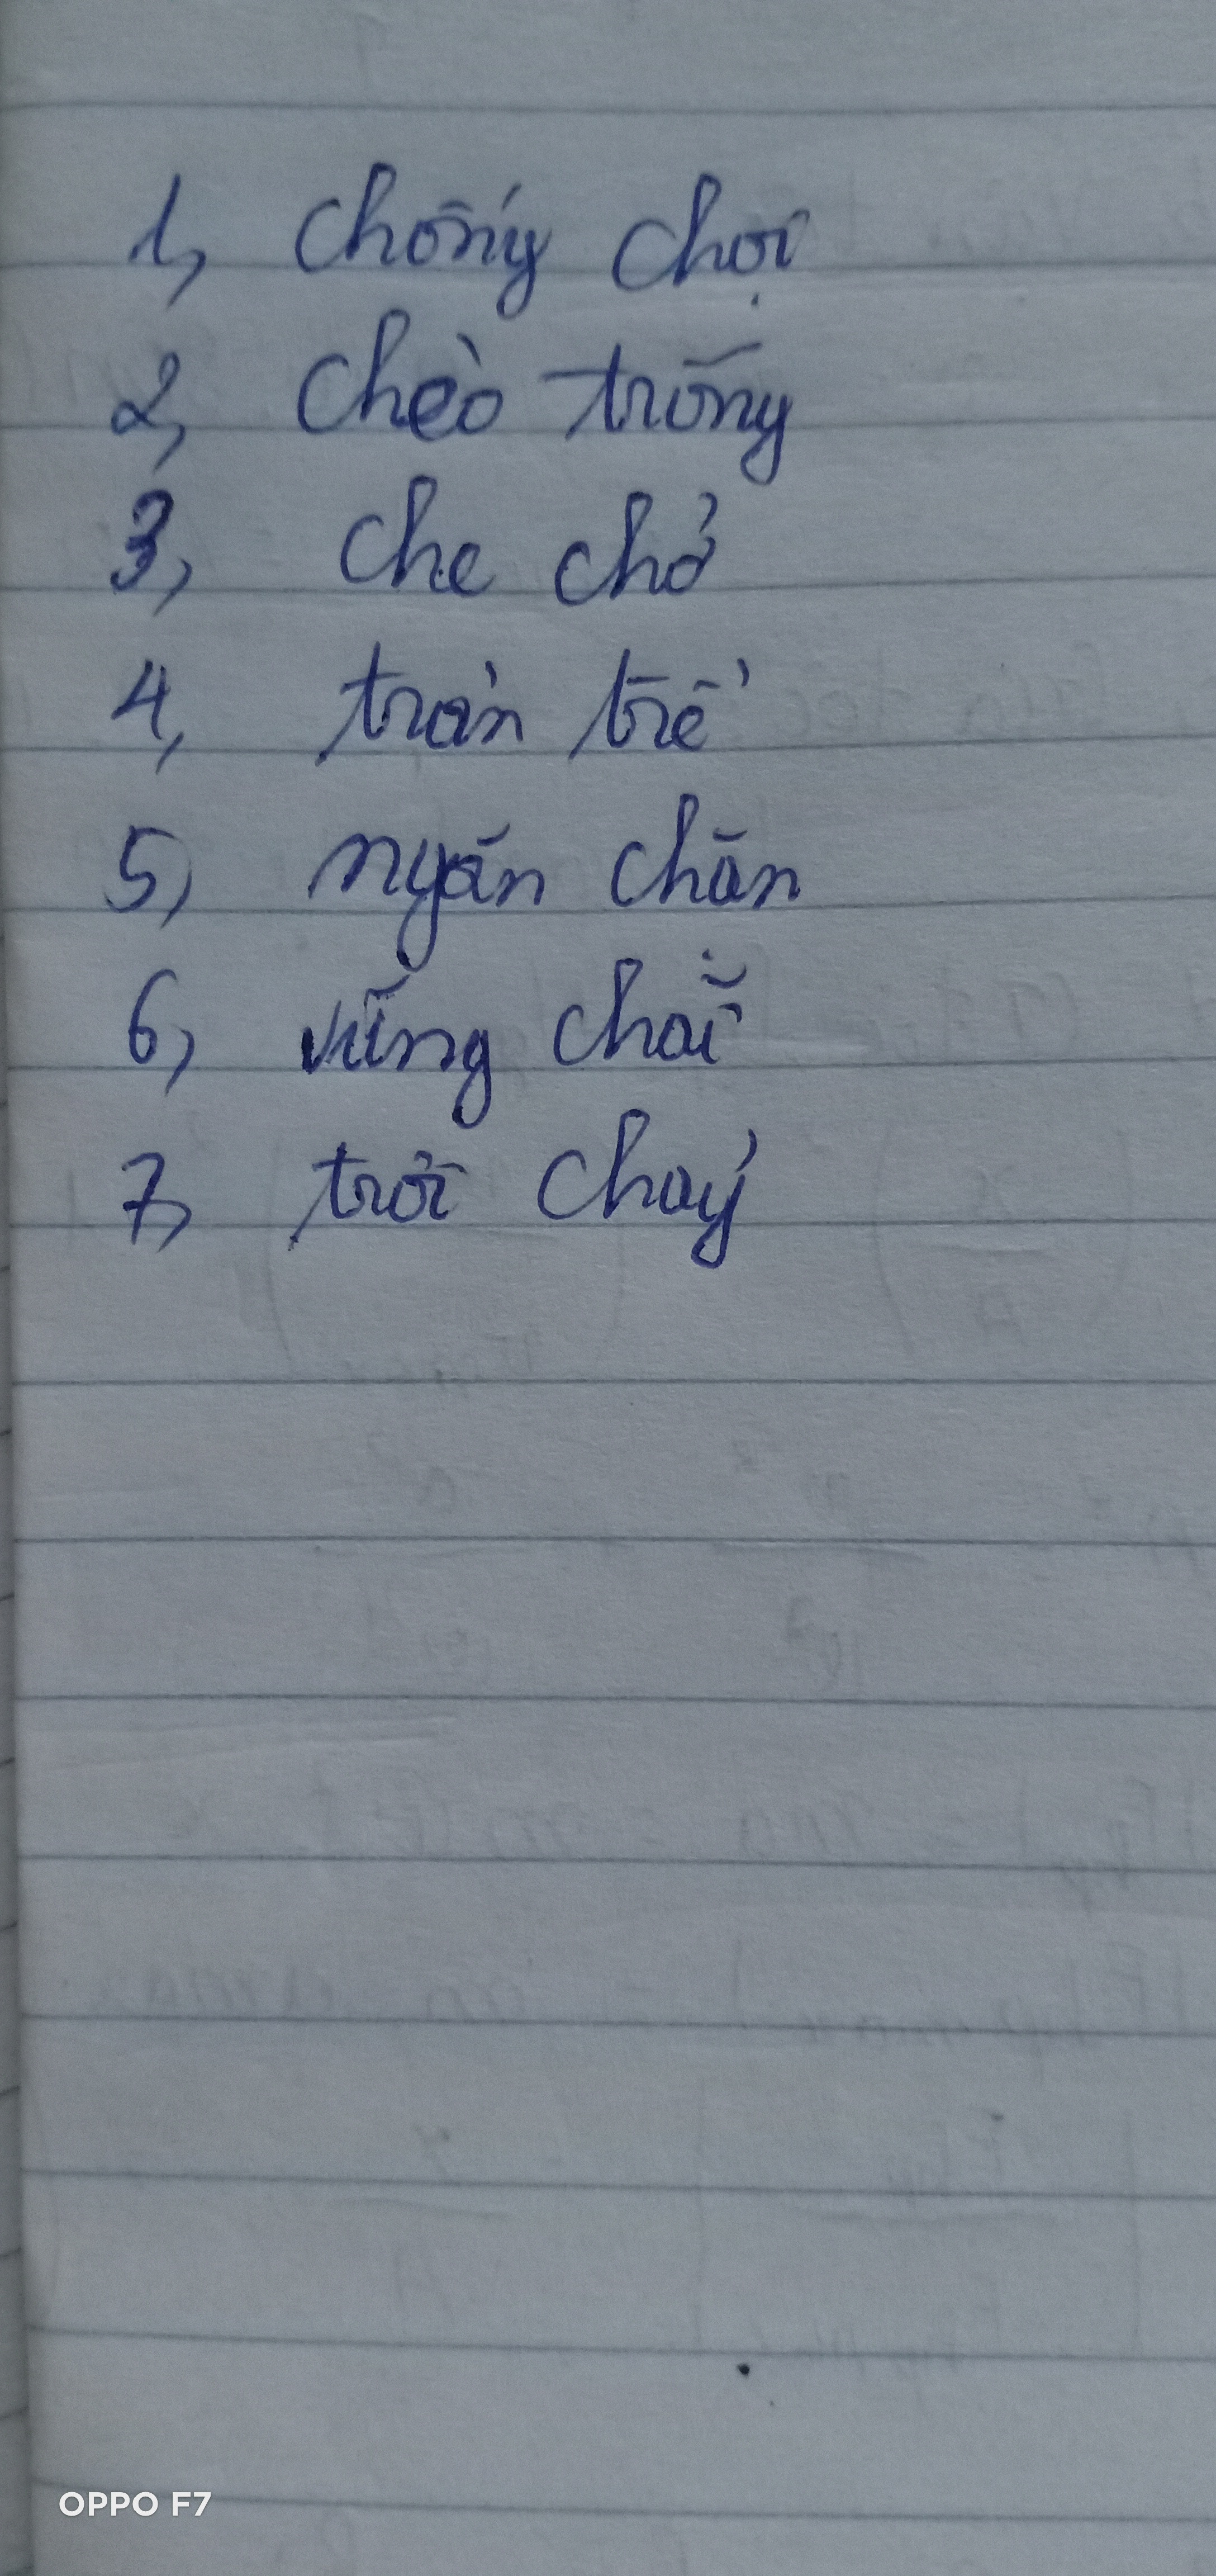 1, chống chọi
2, chèo trống
3, che chở
4, tràn trề
5, ngắn chăn
6, vững chãi
7, trôi chảy
OPPO F7